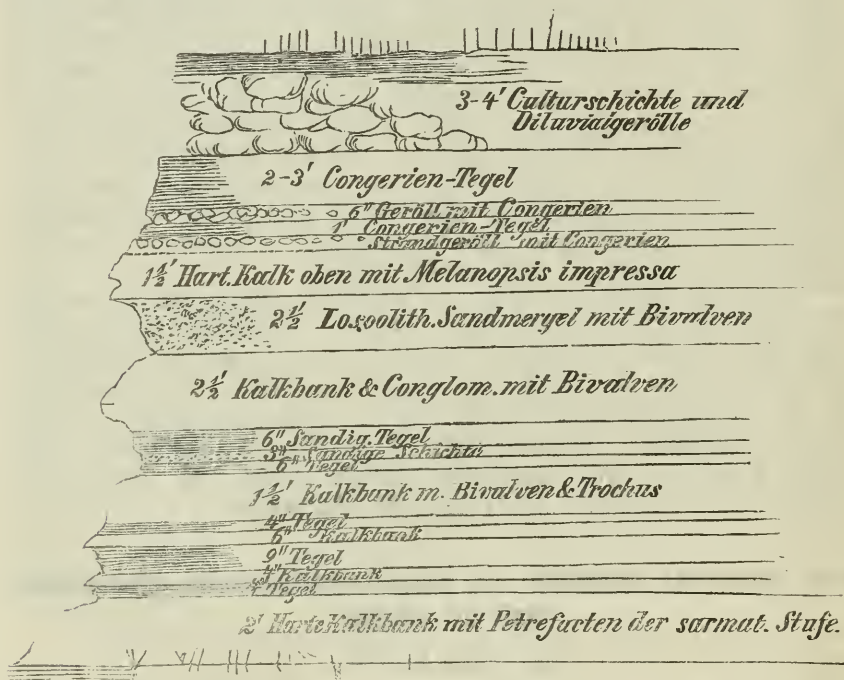 3-4' Culturschichte und
Diluvialgerölle
2-3' Congerien-Tegel
6" Geröll mit Congerien
1' Congerien-Tegel
Strandgeröll mit Congerien
1½' Hart. Kalk oben mit Melanopsis impressa
2½' Losoolith. Sandmergel mit Bivalven
2½' Kalkbank & Conglom. mit Bivalven
6" Sandig. Tegel
3" Sandige Schichte
6" Tegel
1½' Kalkbank m. Bivalven & Trochus
4" Tegel
6" Kalkbank
9" Tegel
4" Kalkbank
Tegel
2' Harte Kalkbank mit Petrefacten der sarmat. Stufe.